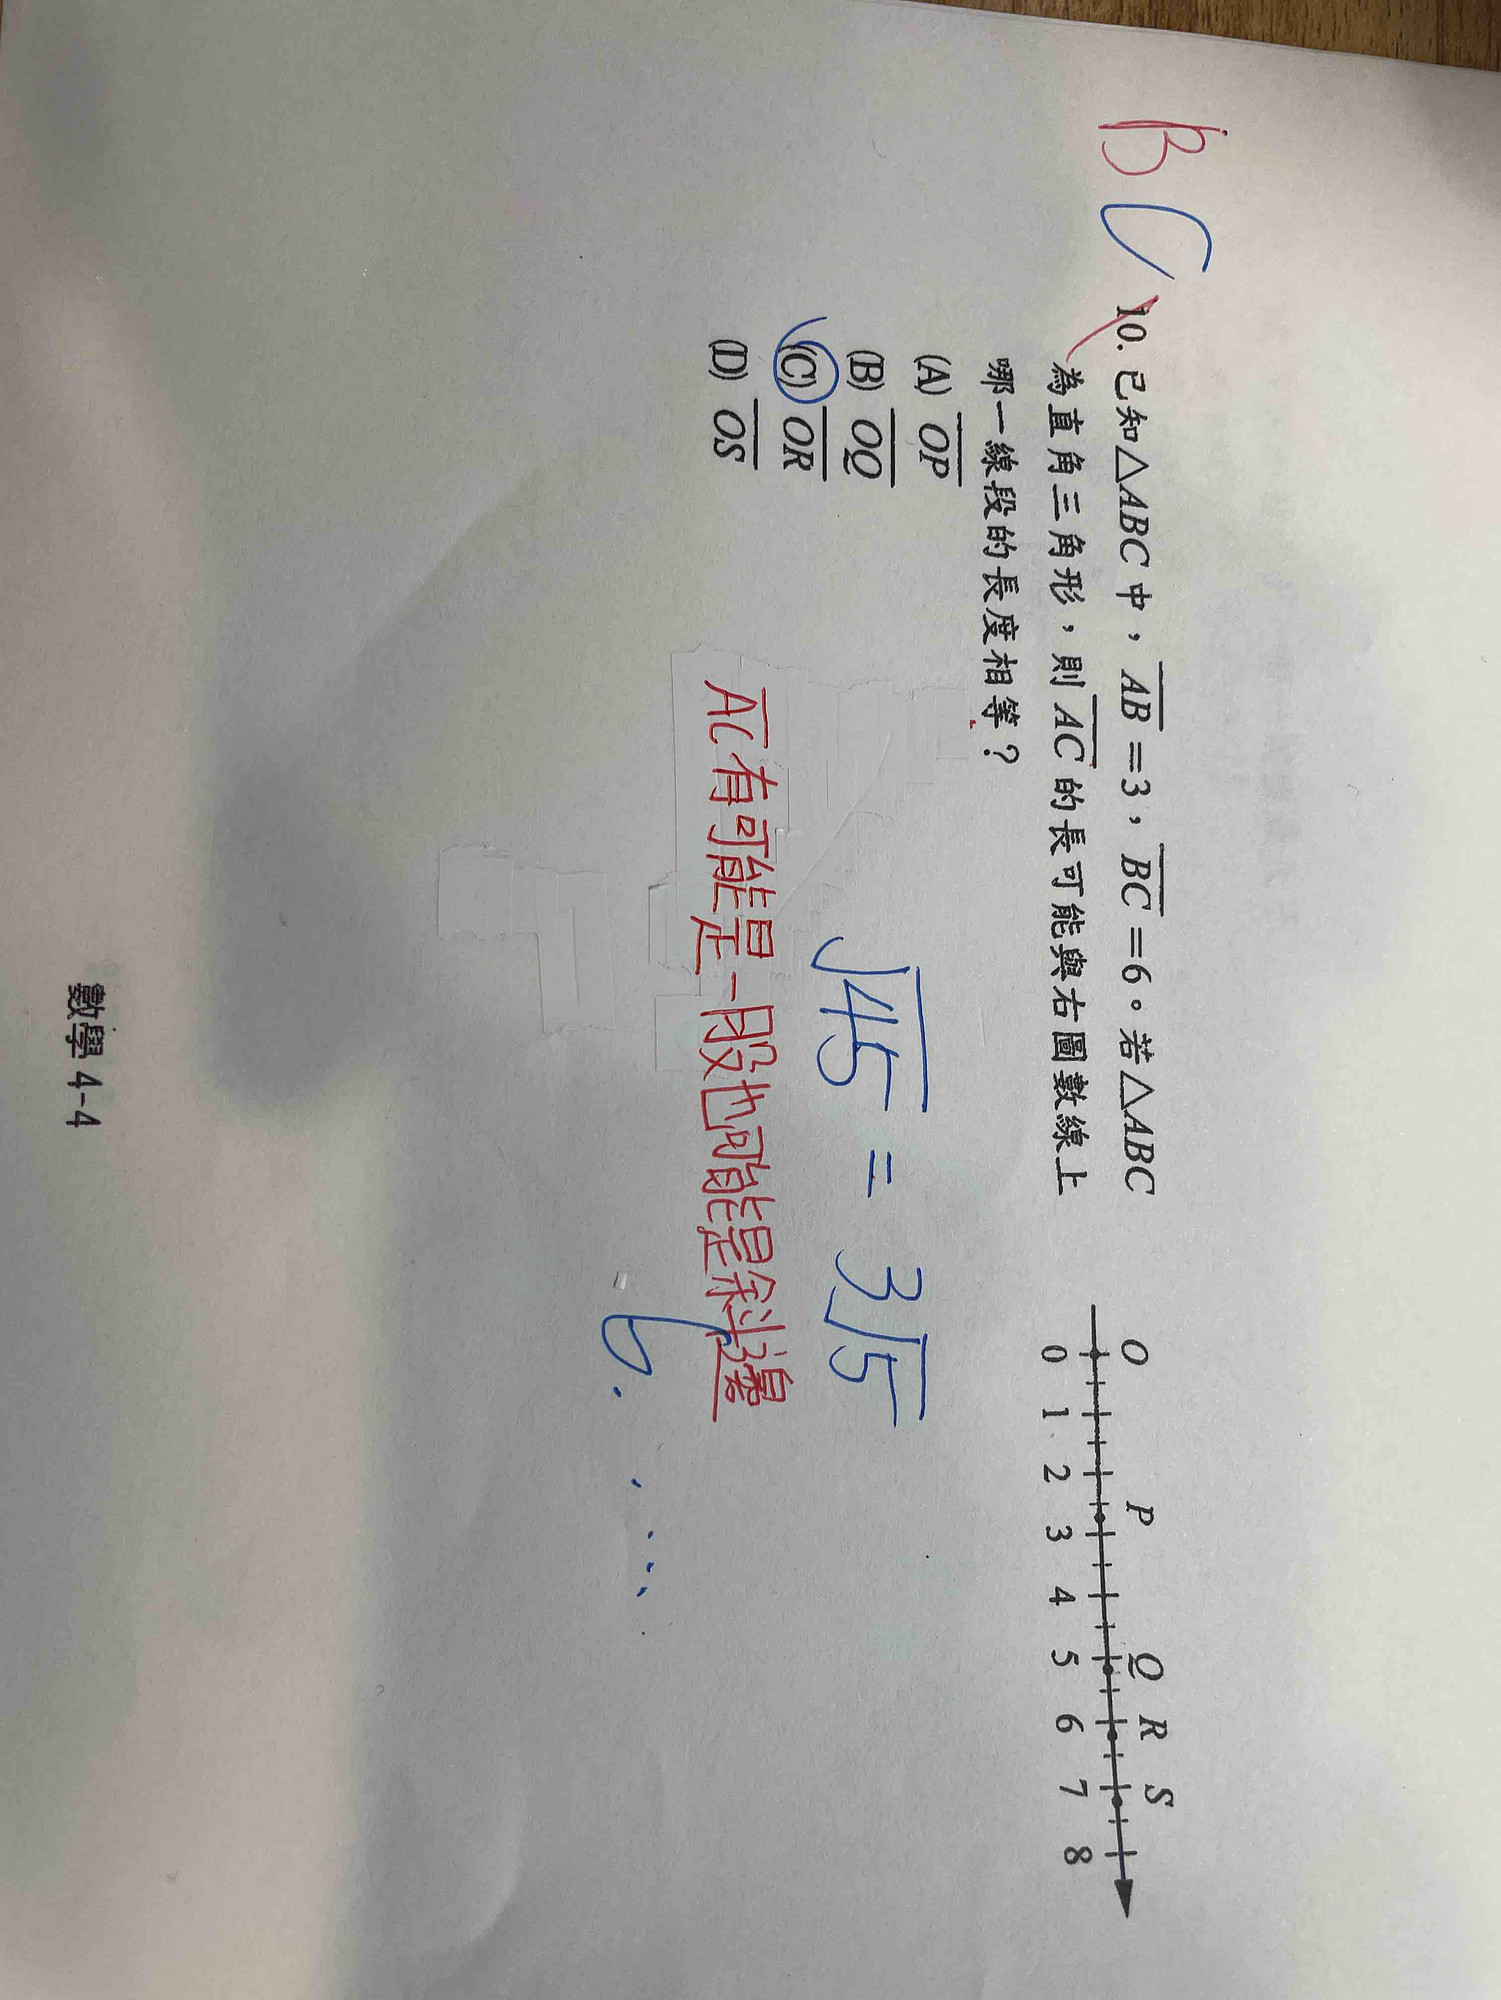 B C 10. 已知△ABC中，AB=3，BC=6。若△ABC
為直角三角形，則AC的長可能與右圖數線上
哪一線段的長度相等？
(A) OP
(B) OQ
(C) OR
(D) OS
O P Q R S
0 1 2 3 4 5 6 7 8
√45 = 3√5
AC有可能是一股也可能是斜邊
6. . . . .
數學 4-4